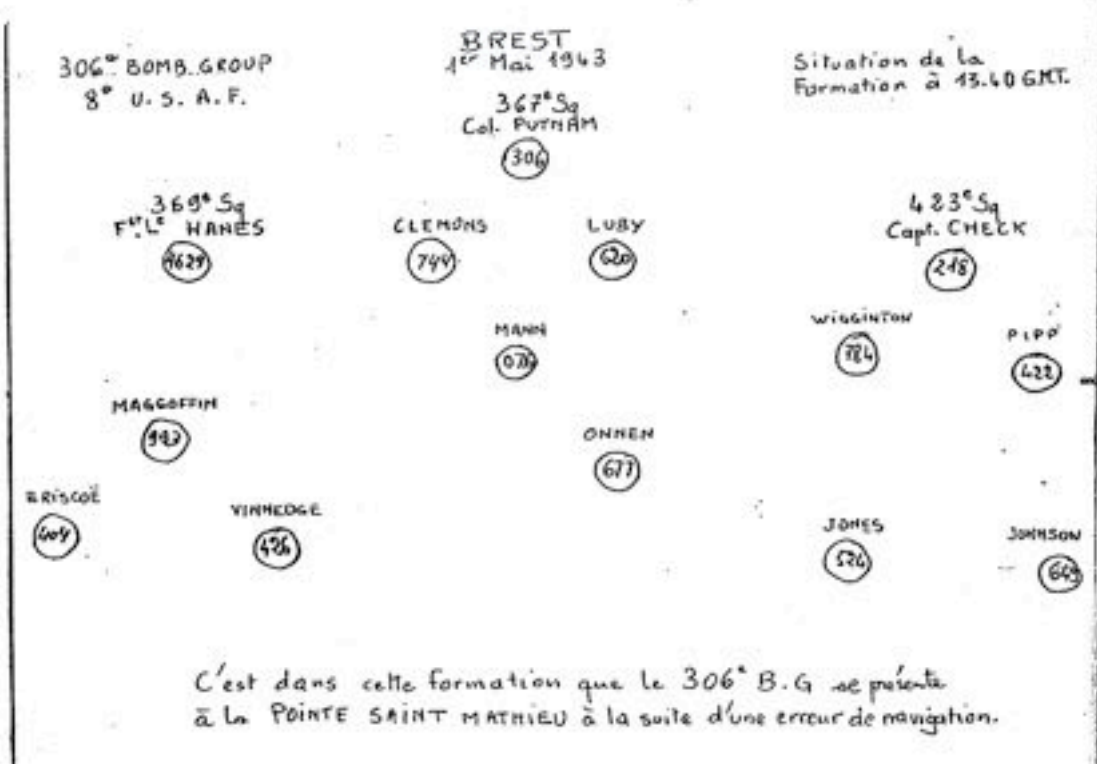 306e BOMB. GROUP
8e U.S.A.F.
BREST
1er Mai 1943
Situation de la
Formation à 13.40 GMT.
367e Sq
Col. PUTNAM
306
369e Sq
Fst Lt HANES
9629
CLEMONS
744
LUBY
620
423e Sq
Capt. CHECK
218
MANN
WIGGINTON
784
PIPP
422
MAGGOFFIN
993
ONNEN
677
BRISCOË
409
VINNEDGE
476
JONES
524
JOHNSON
649
C'est dans cette formation que le 306e B.G se présente
à la POINTE SAINT MATHIEU à la suite d'une erreur de navigation.